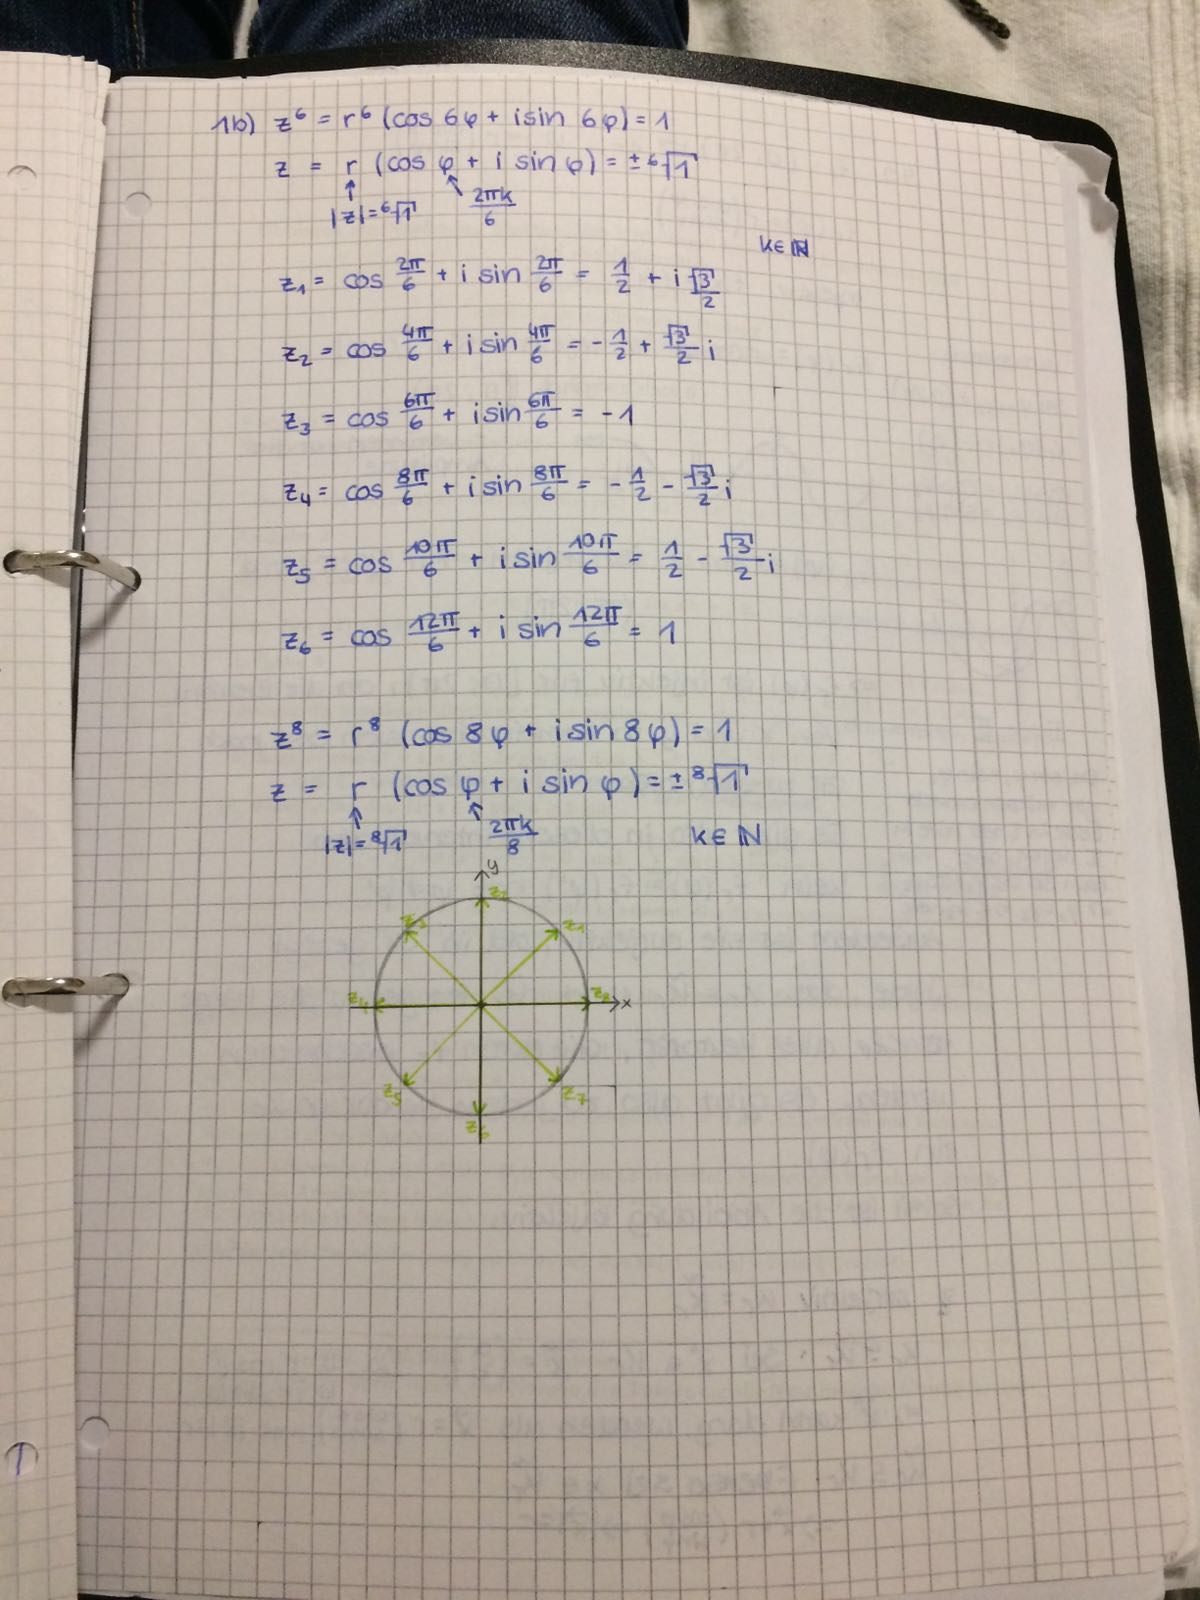 1b) z⁶ = r⁶ (cos 6φ + i sin 6φ) = 1
z = r (cos φ + i sin φ) = ± ⁶√1
↑ ↖
|z| = ⁶√1 2πk/6
k ∈ ℕ
z₁ = cos 2π/6 + i sin 2π/6 = 1/2 + i √3/2
z₂ = cos 4π/6 + i sin 4π/6 = - 1/2 + √3/2 i
z₃ = cos 6π/6 + i sin 6π/6 = - 1
z₄ = cos 8π/6 + i sin 8π/6 = - 1/2 - √3/2 i
z₅ = cos 10π/6 + i sin 10π/6 = 1/2 - √3/2 i
z₆ = cos 12π/6 + i sin 12π/6 = 1
z⁸ = r⁸ (cos 8φ + i sin 8φ) = 1
z = r (cos φ + i sin φ) = ± ⁸√1
↑ ↖
|z| = ⁸√1 2πk/8 k ∈ ℕ
y
z₂
z₃ z₁
z₄ z₈ x
z₅ z₇
z₆